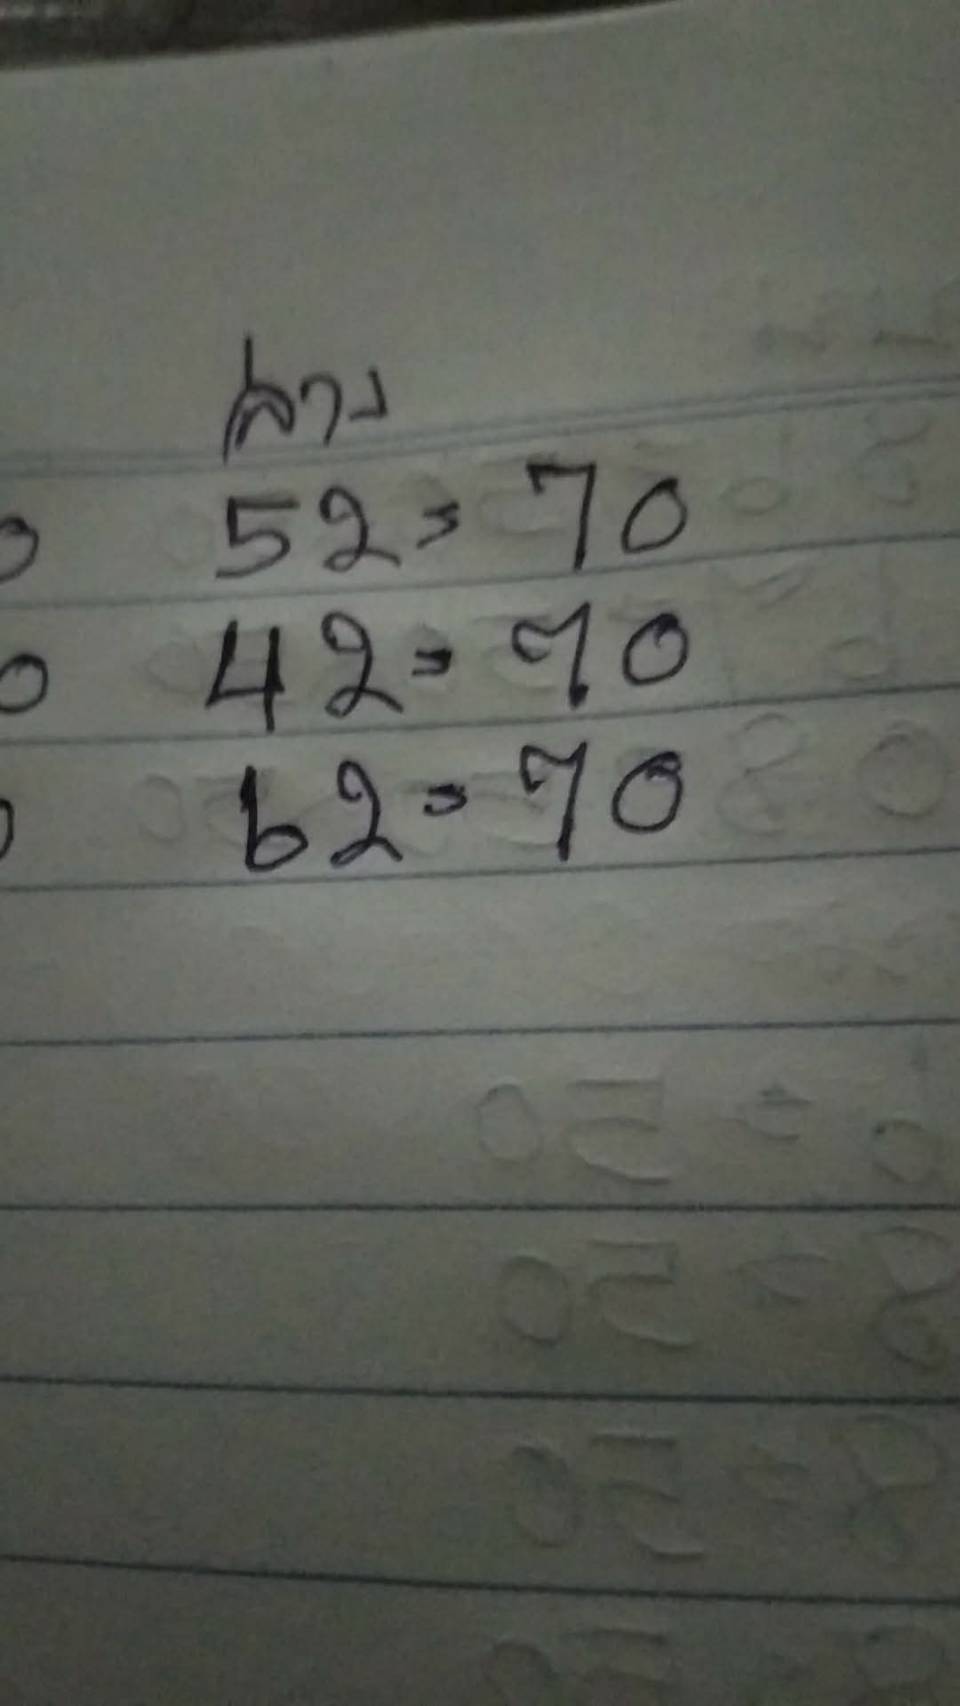 ล่าง
0 52=70
0 42=70
0 62=70